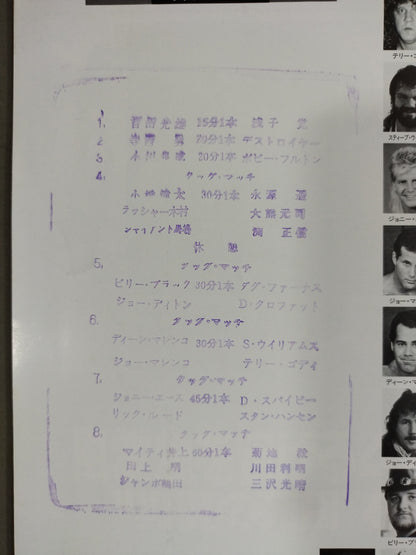 1. 菅 15分1本 浅子 覚
2 20分1本 デストロイヤー
3. 小川良成 20分1本 ボビー・フルトン
4. タッグ・マッチ
小橋健太 30分1本 永源 遥
ラッシャー木村 大熊元司
ジャイアント馬場 渕 正信
休憩
5. タッグ・マッチ
ビリー・ブラック 30分1本 ダグ・ファーナス
ジョー・ディトン D・クロファット
6. タッグ・マッチ
ディーン・マレンコ 30分1本 S・ウイリアムス
ジョー・マレンコ テリー・ゴディ
7. タッグ・マッチ
ジョニー・エース 45分1本 D・スパイビー
リック・ルード スタン・ハンセン
8. タッグ・マッチ
マイティ井上 60分1本 菊地 毅
田上 明 川田利明
ジャンボ鶴田 三沢光晴
テリー・ゴ
スティーブ・ウ
ジョニー・
ジョー・マ
ディーン・マ
ジョー・ディ
ビリー・ブ